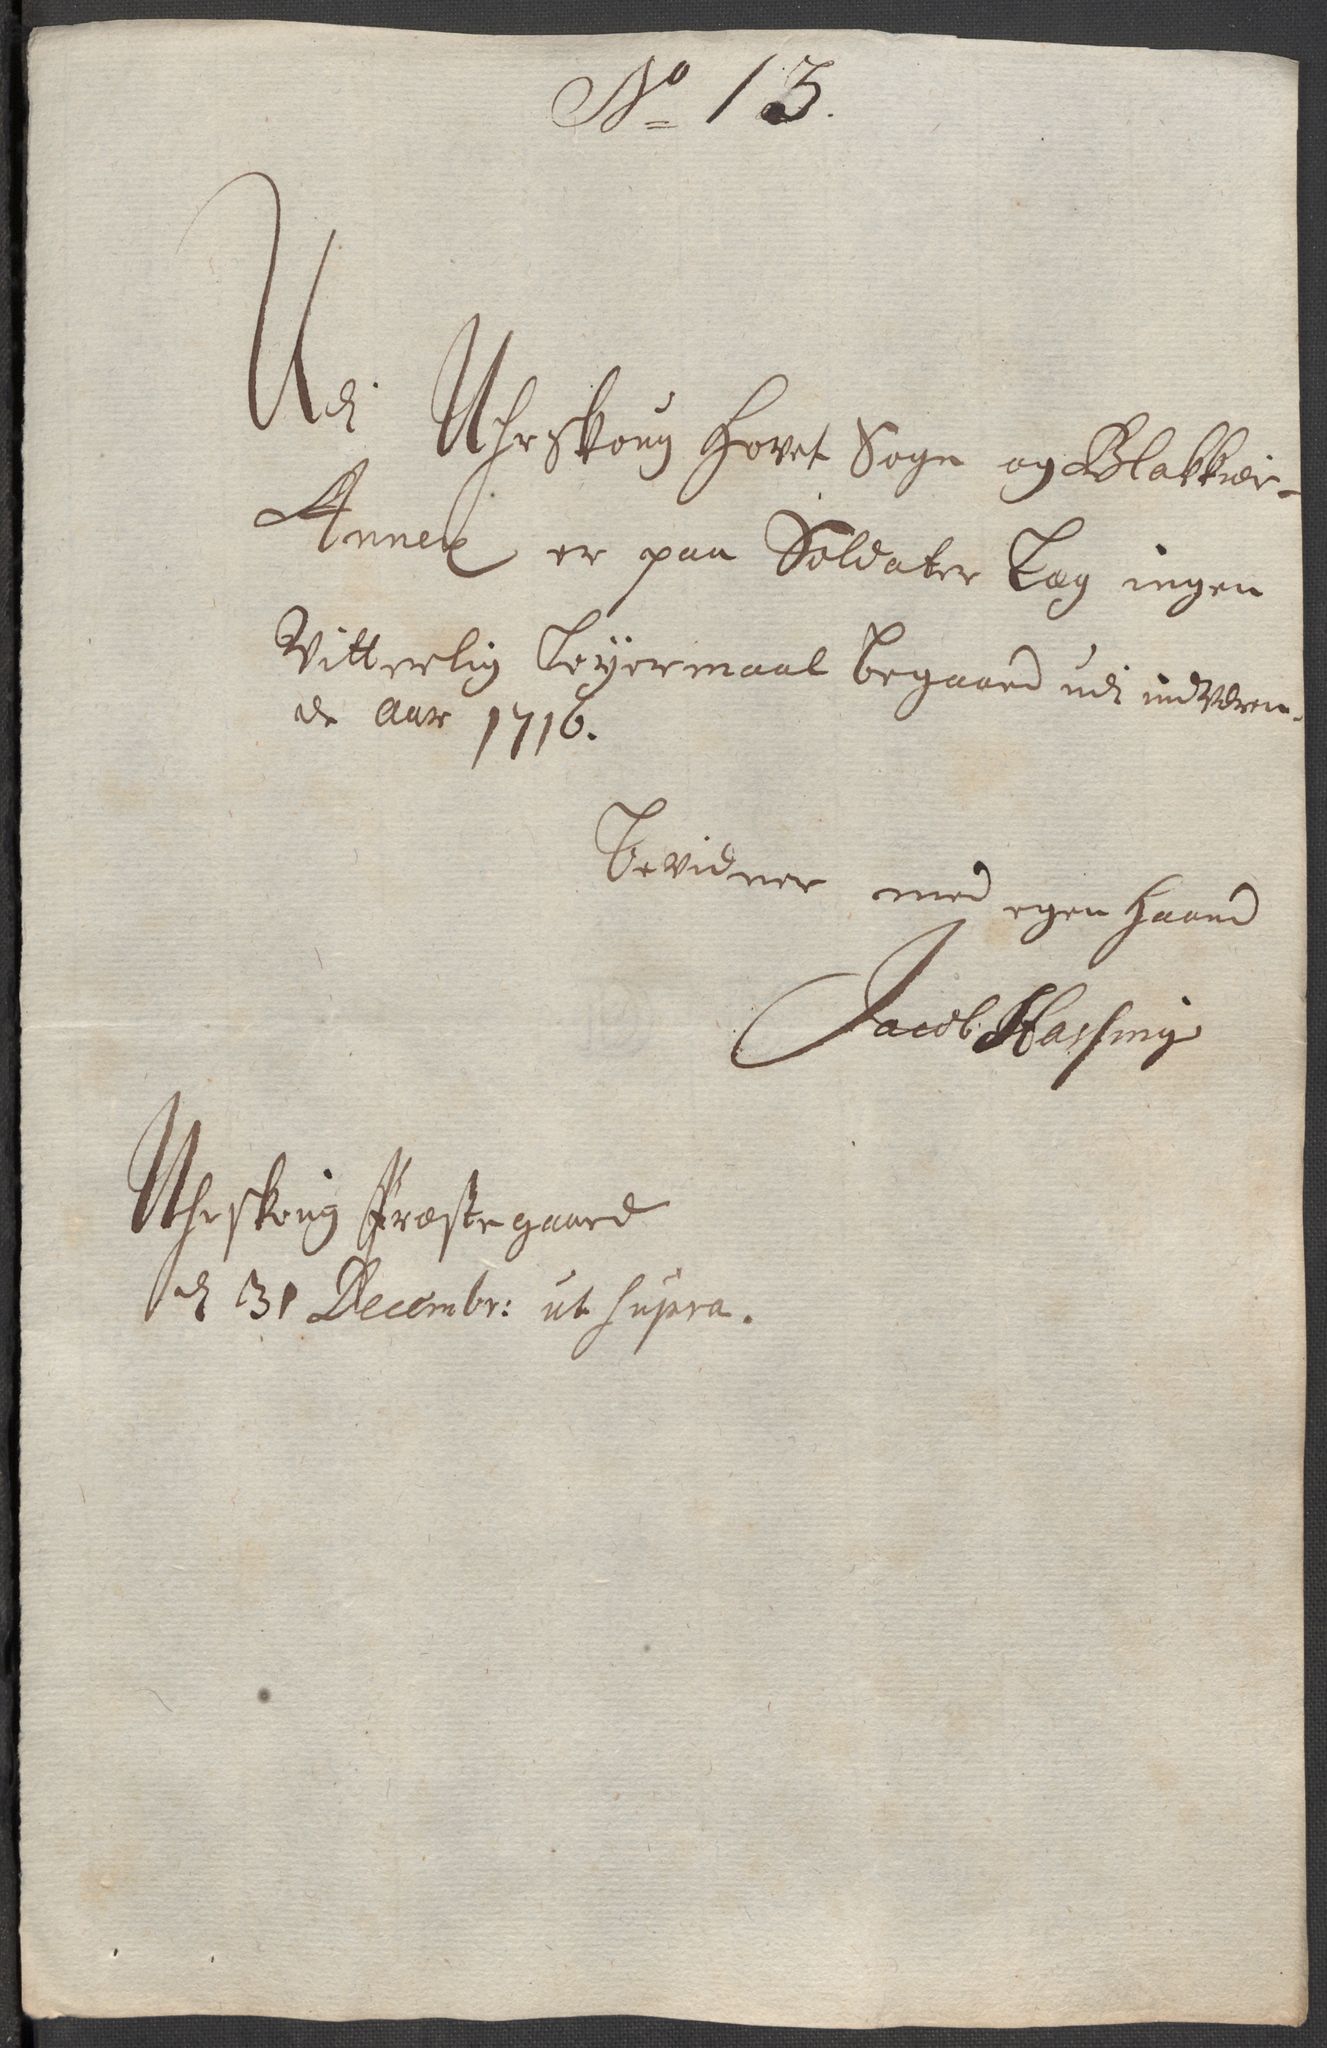 No 13.
Udi Uhrskoug Hovet Sogn og Blakkier-
Annex er paa Soldater Læg ingen
Vitterlig Leyermaal begaaed udi indværen-
de Aar 1716.
Bevidner med egen Haand
Jacob Hassing
Uhrskoug Præstegaard
d 31 Decembr: ut supra.